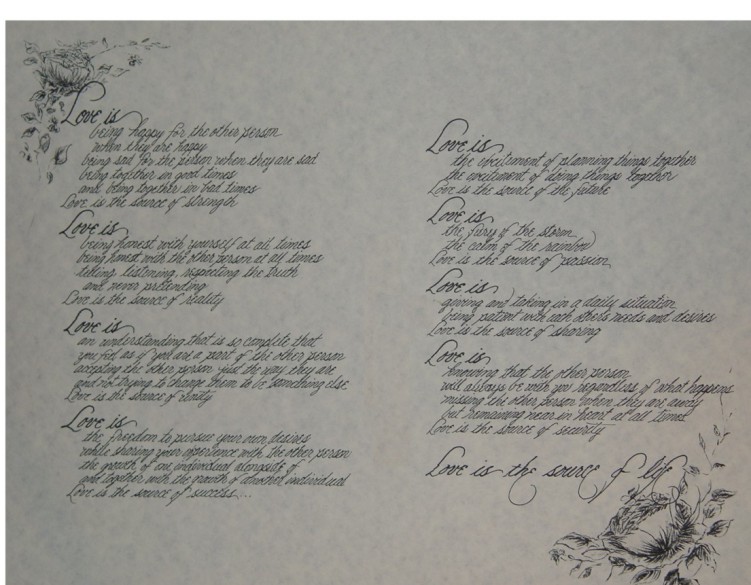 Love is
being happy for the other person
when they are happy
being sad for the person when they are sad
being together in good times
and being together in bad times
Love is the source of strength
Love is
being honest with yourself at all times
being honest with the other person at all times
telling, listening, respecting the truth
and never pretending
Love is the source of reality
Love is
an understanding that is so complete that
you feel as if you are a part of the other person
accepting the other person just the way they are
and not trying to change them to be something else
Love is the source of unity
Love is
the freedom to pursue your own desires
while sharing your experience with the other person
the growth of one individual alongside of
and together with the growth of another individual
Love is the source of success....
Love is
the excitement of planning things together
the excitement of doing things together
Love is the source of the future
Love is
the fury of the storm
the calm of the rainbow
Love is the source of passion
Love is
giving and taking in a daily situation
being patient with each others needs and desires
Love is the source of sharing
Love is
knowing that the other person
will always be with you regardless of what happens
missing the other person when they are away
but remaining near in heart at all times
Love is the source of security
Love is the source of life